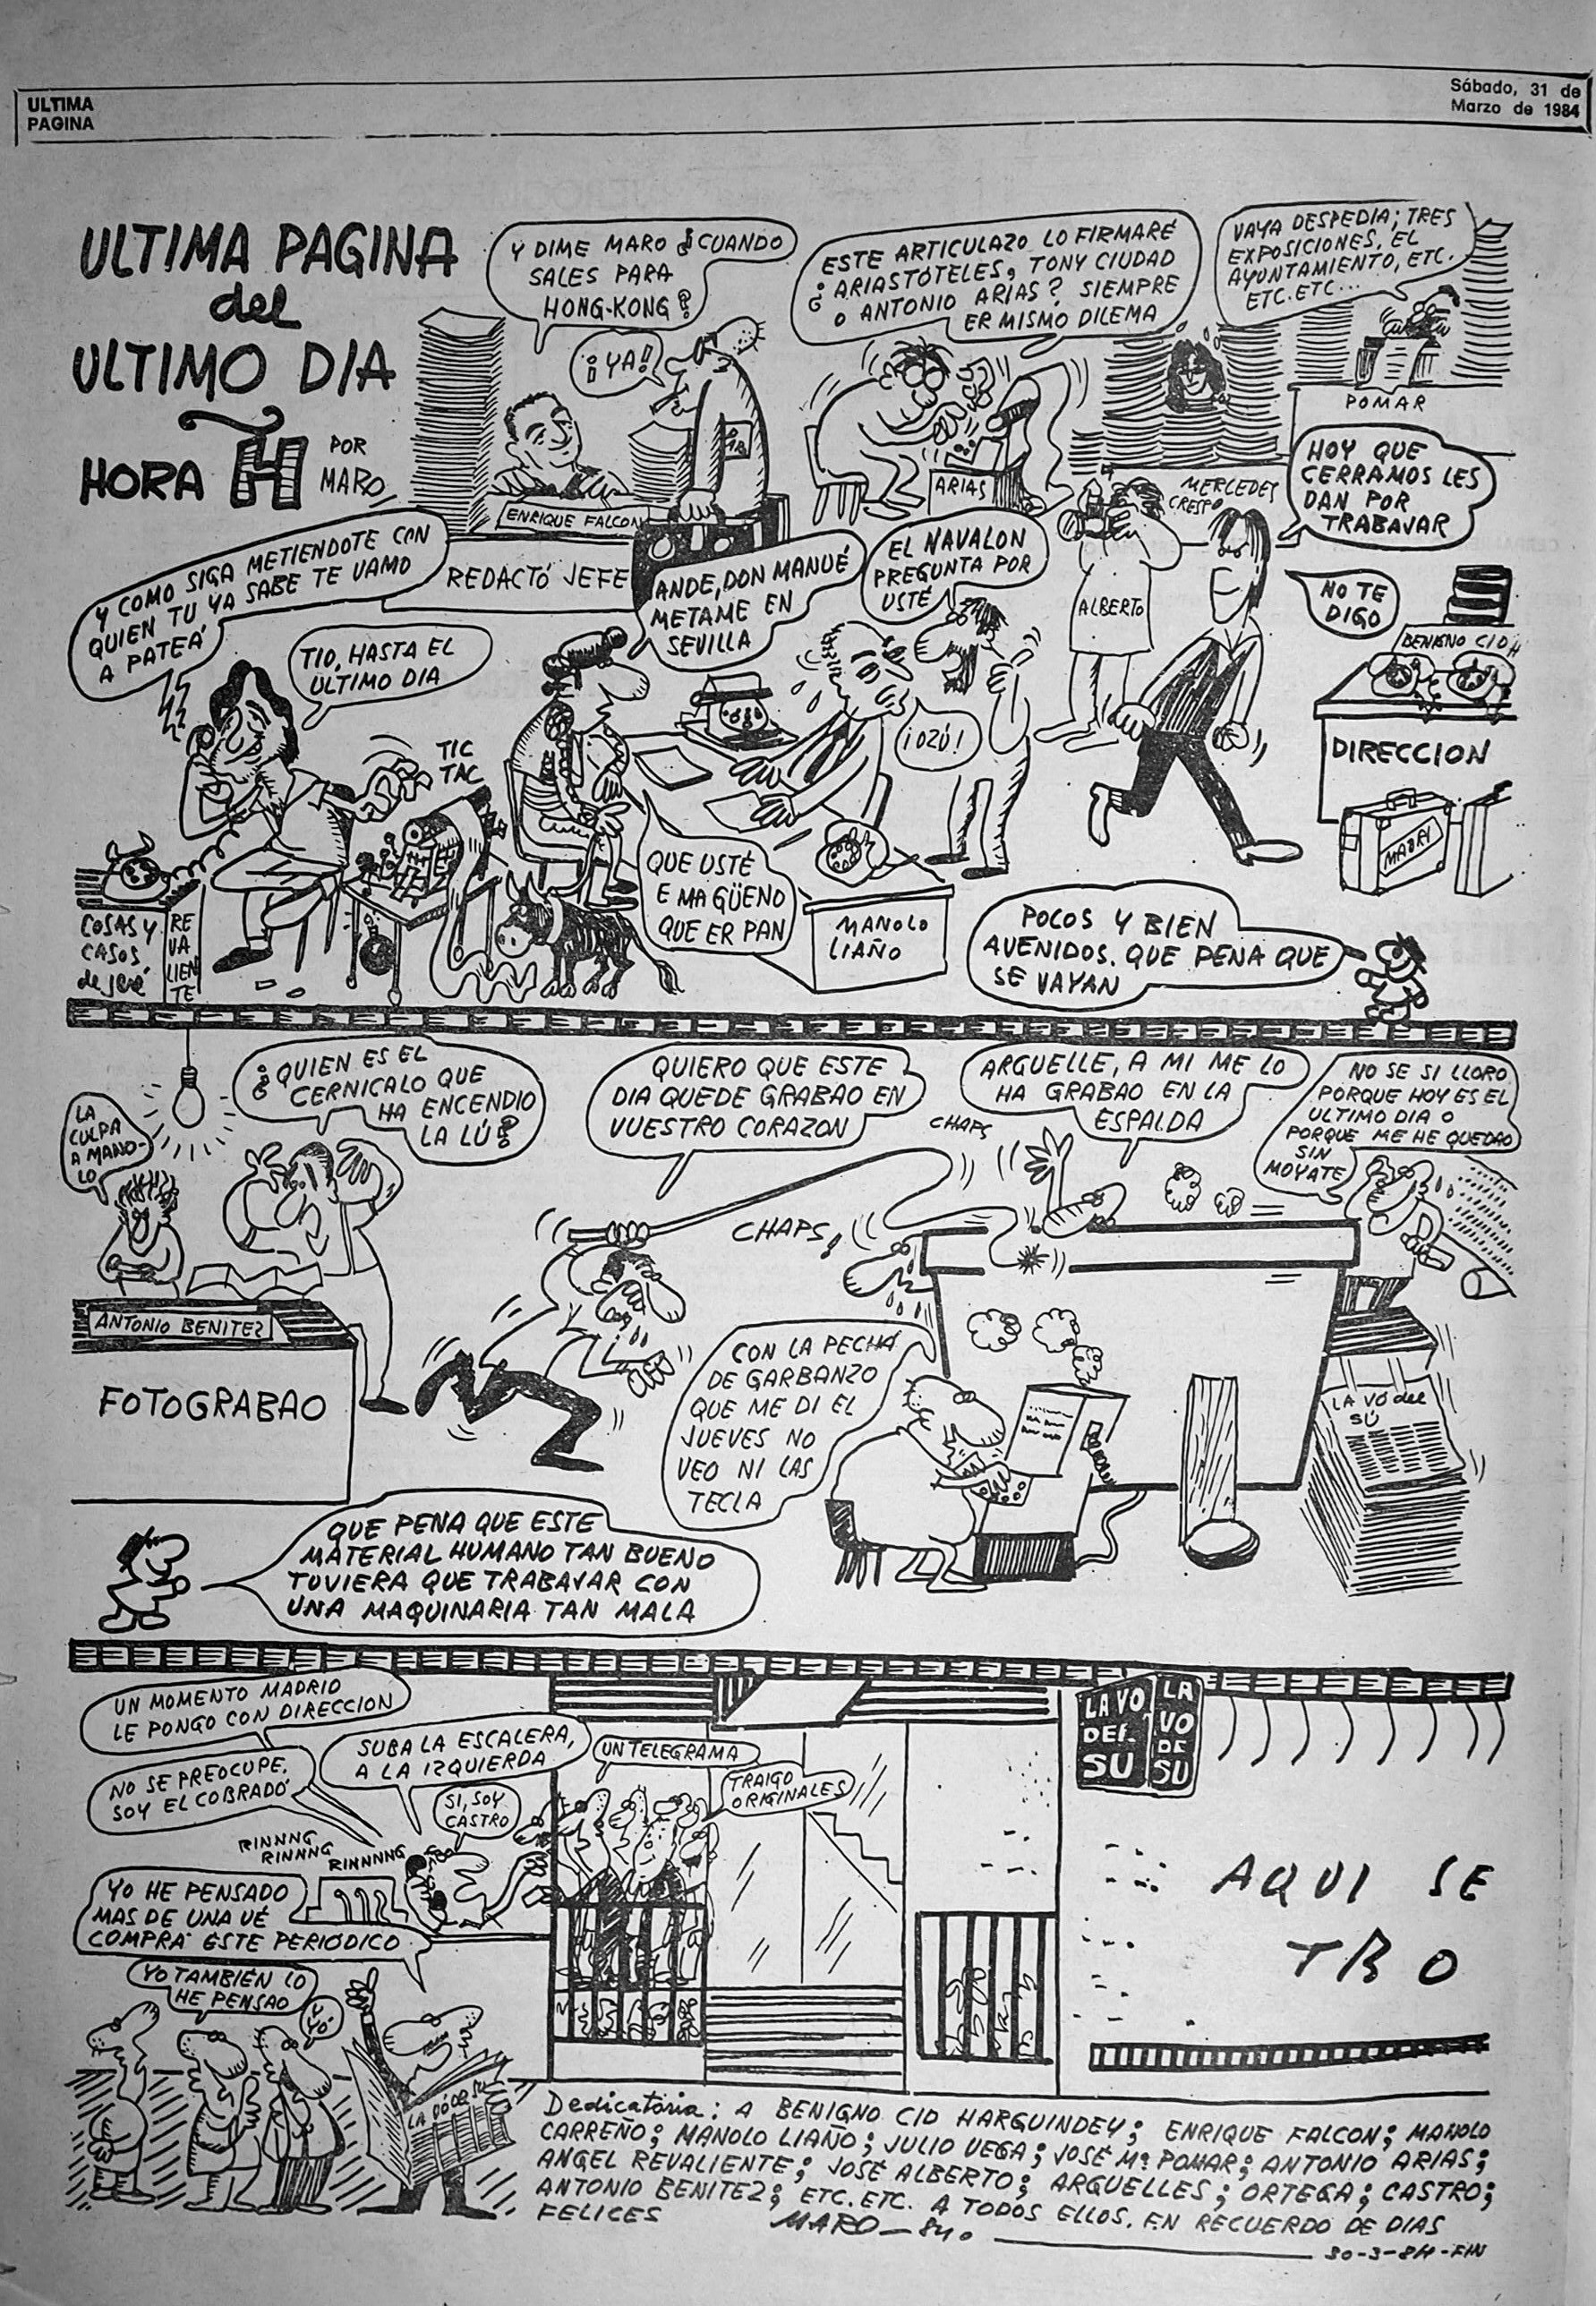 ULTIMA
PAGINA
Sábado, 31 de
Marzo de 1984
ULTIMA PAGINA
del
ULTIMO DIA
HORA H
POR
MARO
Y DIME MARO ¿CUANDO
SALES PARA
HONG-KONG?
¡YA!
ENRIQUE FALCON
REDACTÓ JEFE
ESTE ARTICULAZO LO FIRMARÉ
¿ARIASTÓTELES, TONY CIUDAD
O ANTONIO ARIAS? SIEMPRE
ER MISMO DILEMA
ARIAS
VAYA DESPEDIA; TRES
EXPOSICIONES, EL
AYUNTAMIENTO, ETC.
ETC. ETC...
POMAR
MERCEDES
CRESPO
HOY QUE
CERRAMOS LES
DAN POR
TRABAJAR
Y COMO SIGA METIENDOTE CON
QUIEN TU YA SABE TE VAMO
A PATEÁ
TIO, HASTA EL
ULTIMO DIA
TIC
TAC
COSAS Y
CASOS
de Jeré
RE
VA
LIEN
TE
ANDE, DON MANUÉ
METAME EN
SEVILLA
QUE USTÉ
E MA GÜENO
QUE ER PAN
EL NAVALON
PREGUNTA POR
USTÉ
¡OZÚ!
MANOLO
LIAÑO
ALBERTO
NO TE
DIGO
BENIGNO CID H
DIRECCION
MADRI
POCOS Y BIEN
AVENIDOS. QUE PENA QUE
SE VAYAN
LA
CULPA
A MANO-
LO
¿QUIEN ES EL
CERNICALO QUE
HA ENCENDIO
LA LÚ?
ANTONIO BENITEZ
FOTOGRABAO
QUIERO QUE ESTE
DIA QUEDE GRABAO EN
VUESTRO CORAZON
CHAPS
CHAPS!
ARGUELLE, A MI ME LO
HA GRABAO EN LA
ESPALDA
NO SE SI LLORO
PORQUE HOY ES EL
ULTIMO DIA O
PORQUE ME HE QUEDAO
SIN
MOYATE
CON LA PECHÁ
DE GARBANZO
QUE ME DI EL
JUEVES NO
VEO NI LAS
TECLA
LA VO del
SÚ
QUE PENA QUE ESTE
MATERIAL HUMANO TAN BUENO
TUVIERA QUE TRABAJAR CON
UNA MAQUINARIA TAN MALA
UN MOMENTO MADRID
LE PONGO CON DIRECCION
NO SE PREOCUPE.
SOY EL COBRADÓ
SUBA LA ESCALERA,
A LA IZQUIERDA
SI, SOY
CASTRO
UN TELEGRAMA
TRAIGO
ORIGINALES
RINNNG
RINNNG
RINNNNG
YO HE PENSADO
MAS DE UNA VÉ
COMPRÁ ESTE PERIÓDICO
YO TAMBIÉN LO
HE PENSAO
Y
YO-
LA VO
DEL
SU
LA
VO
DE
SU
AQUI SE
TRO
Dedicatoria: A BENIGNO CID HARGUINDEY; ENRIQUE FALCON; MANOLO
CARREÑO; MANOLO LIAÑO; JULIO VEGA; JOSÉ Mª POMAR; ANTONIO ARIAS;
ANGEL REVALIENTE; JOSÉ ALBERTO; ARGUELLES; ORTEGA; CASTRO;
ANTONIO BENITEZ; ETC. ETC. A TODOS ELLOS. EN RECUERDO DE DIAS
FELICES
MARO-84.
30-3-84-FIN